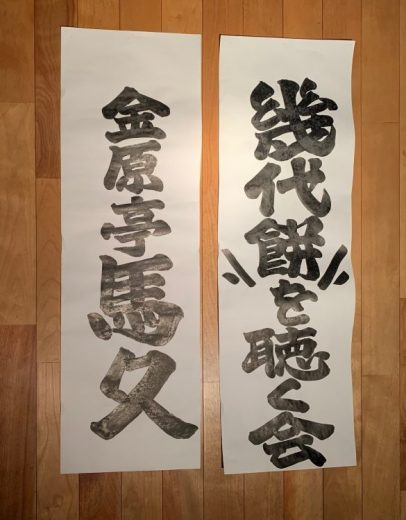 幾代餅を聴く会
金原亭馬久